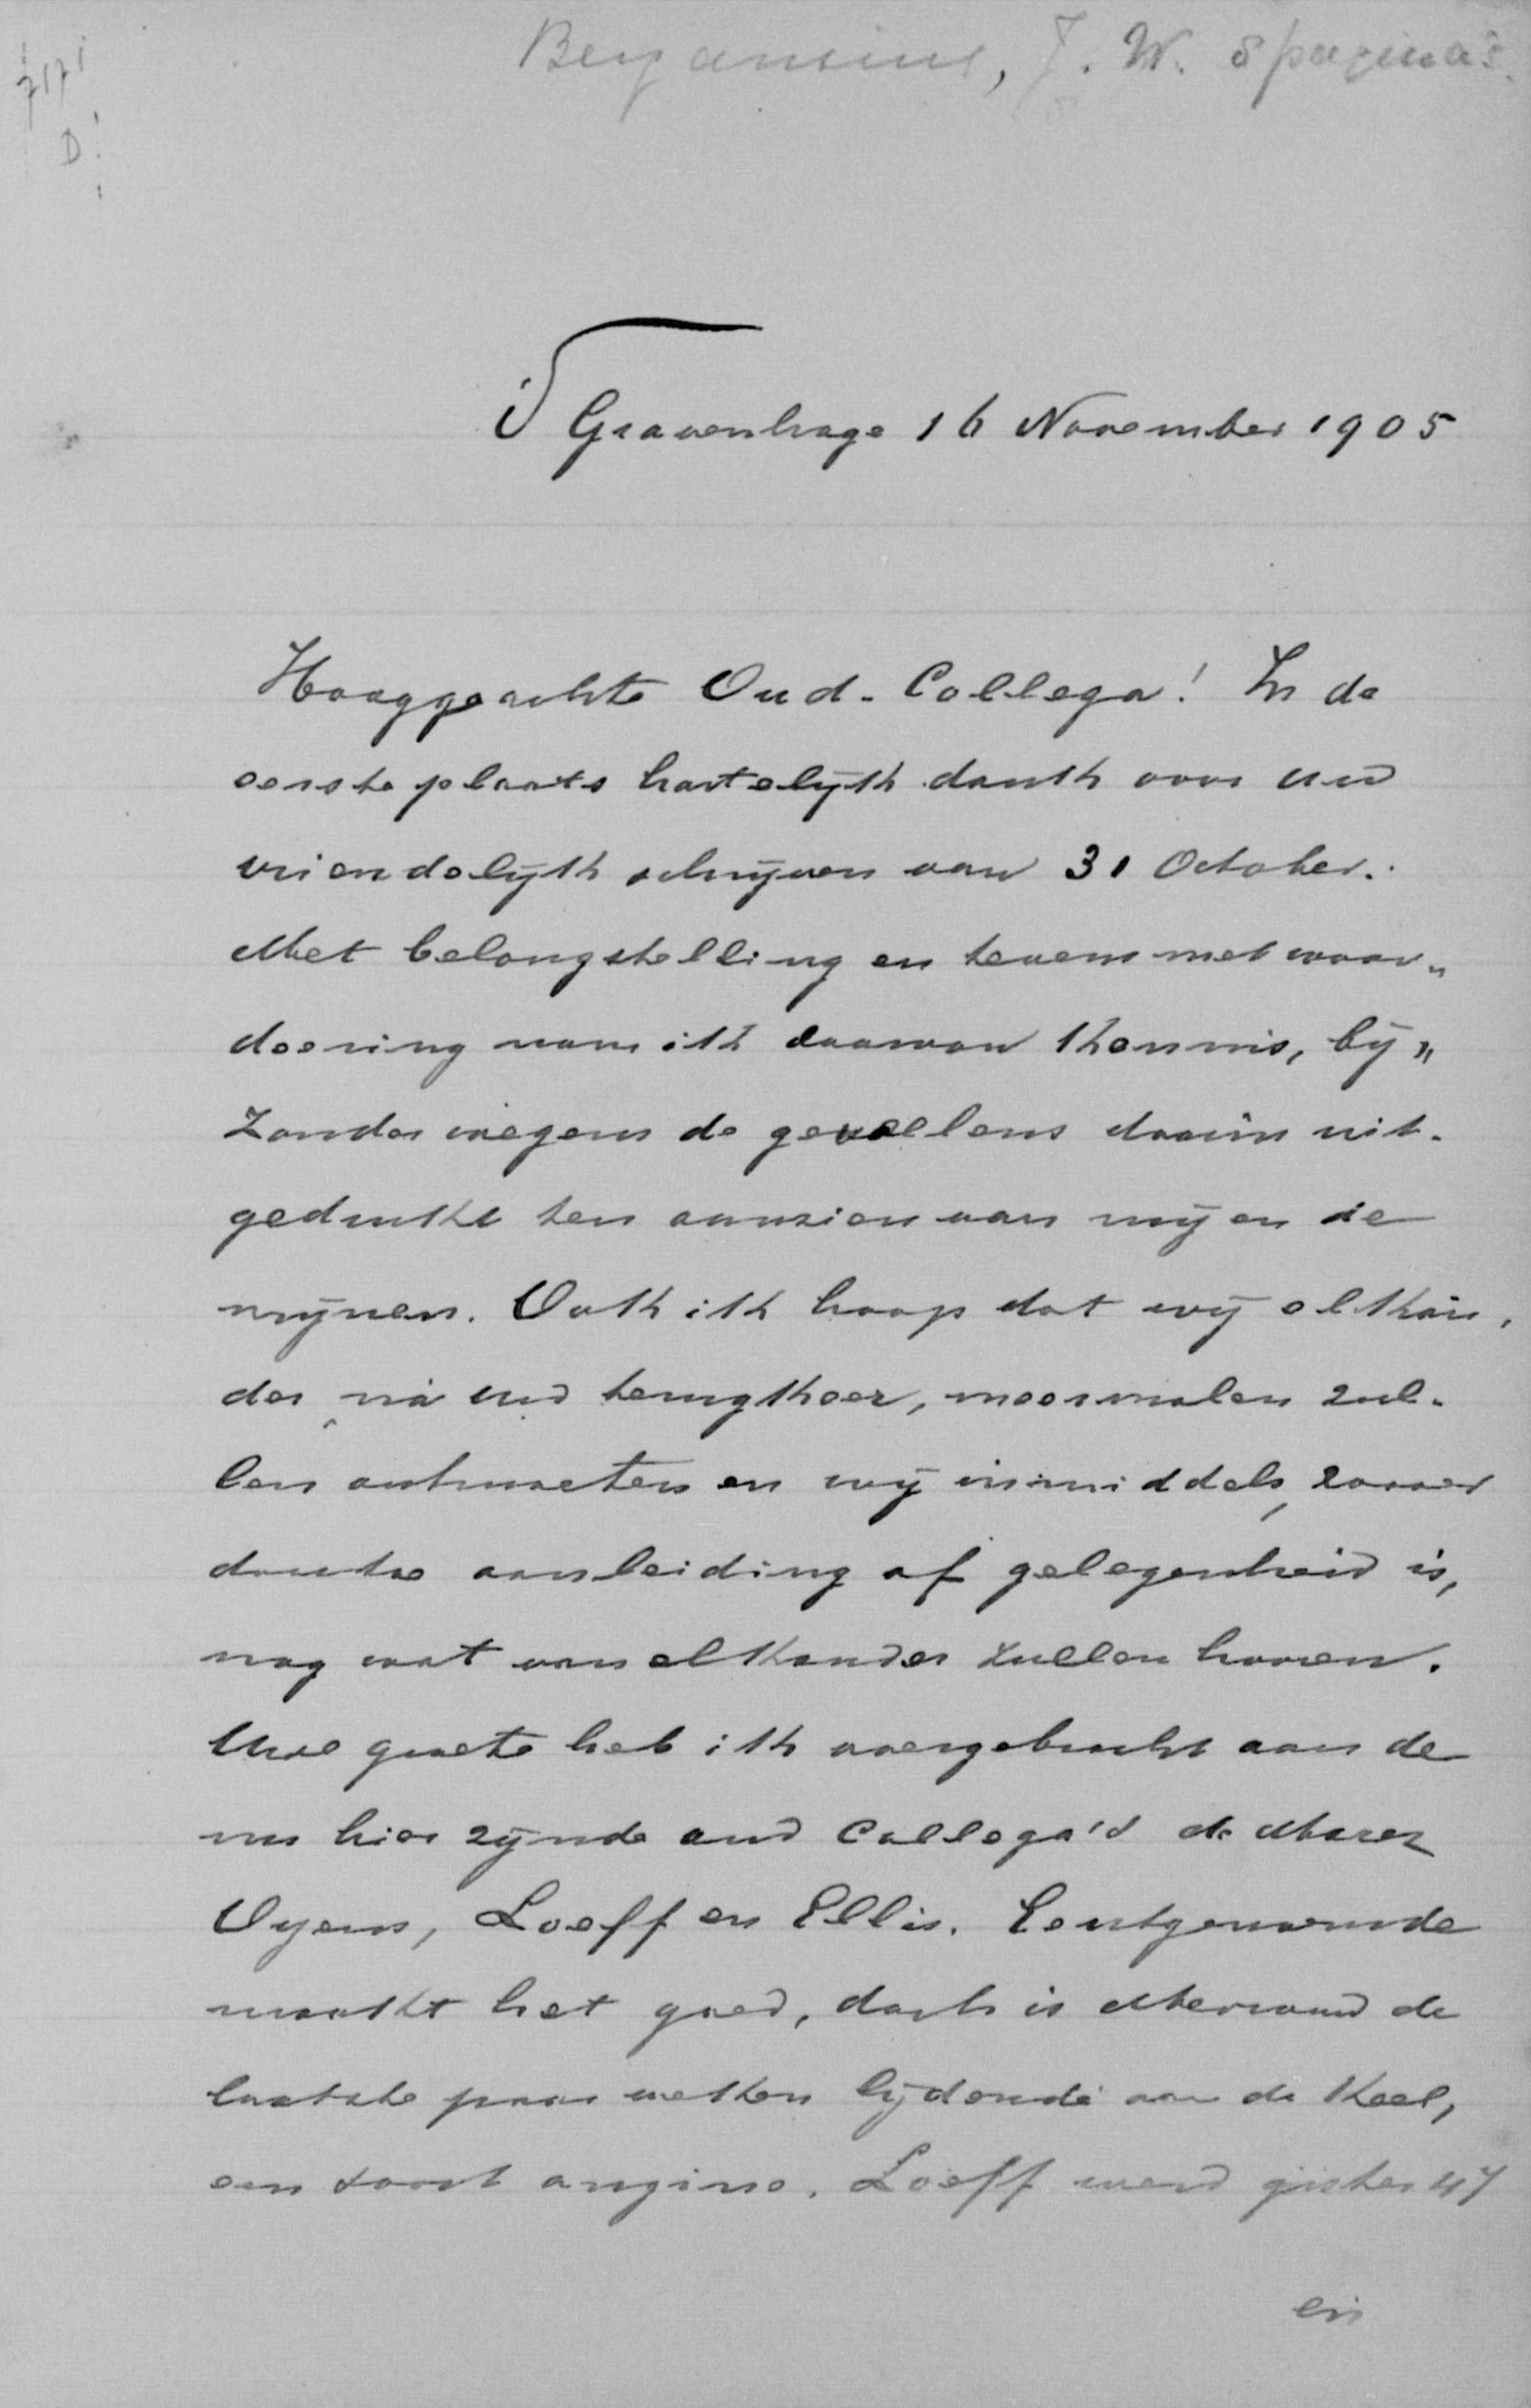 Bergansius, J. W. 8 pagina's.
7171
D
's Gravenhage 16 November 1905
Hooggeachte Oud-Collega! In de
eerste plaats hartelijk dank voor uw
vriendelijk schrijven van 31 October.
Met belangstelling en tevens met waar„
deering nam ik daarvan kennis, bij„
zonder wegens de gevoelens daarin uit-
gedrukt ten aanzien van mij en de
mijnen. Ook ik hoop dat wij elkan,
der, nà uw terugkeer, meermalen zul-
len ontmoeten en wij inmiddels, zoover
daartoe aanleiding of gelegenheid is,
nog wat van elkander zullen hooren.
Uwe groete heb ik overgebracht aan de
nu hier zijnde oud Collega's de Marez
Oyens, Loeff en Ellis. Eerstgenoemde
maakt het goed, doch is Mevrouw de
laatste paar weken lijdende aan de keel,
een soort angina. Loeff werd gister 47
en